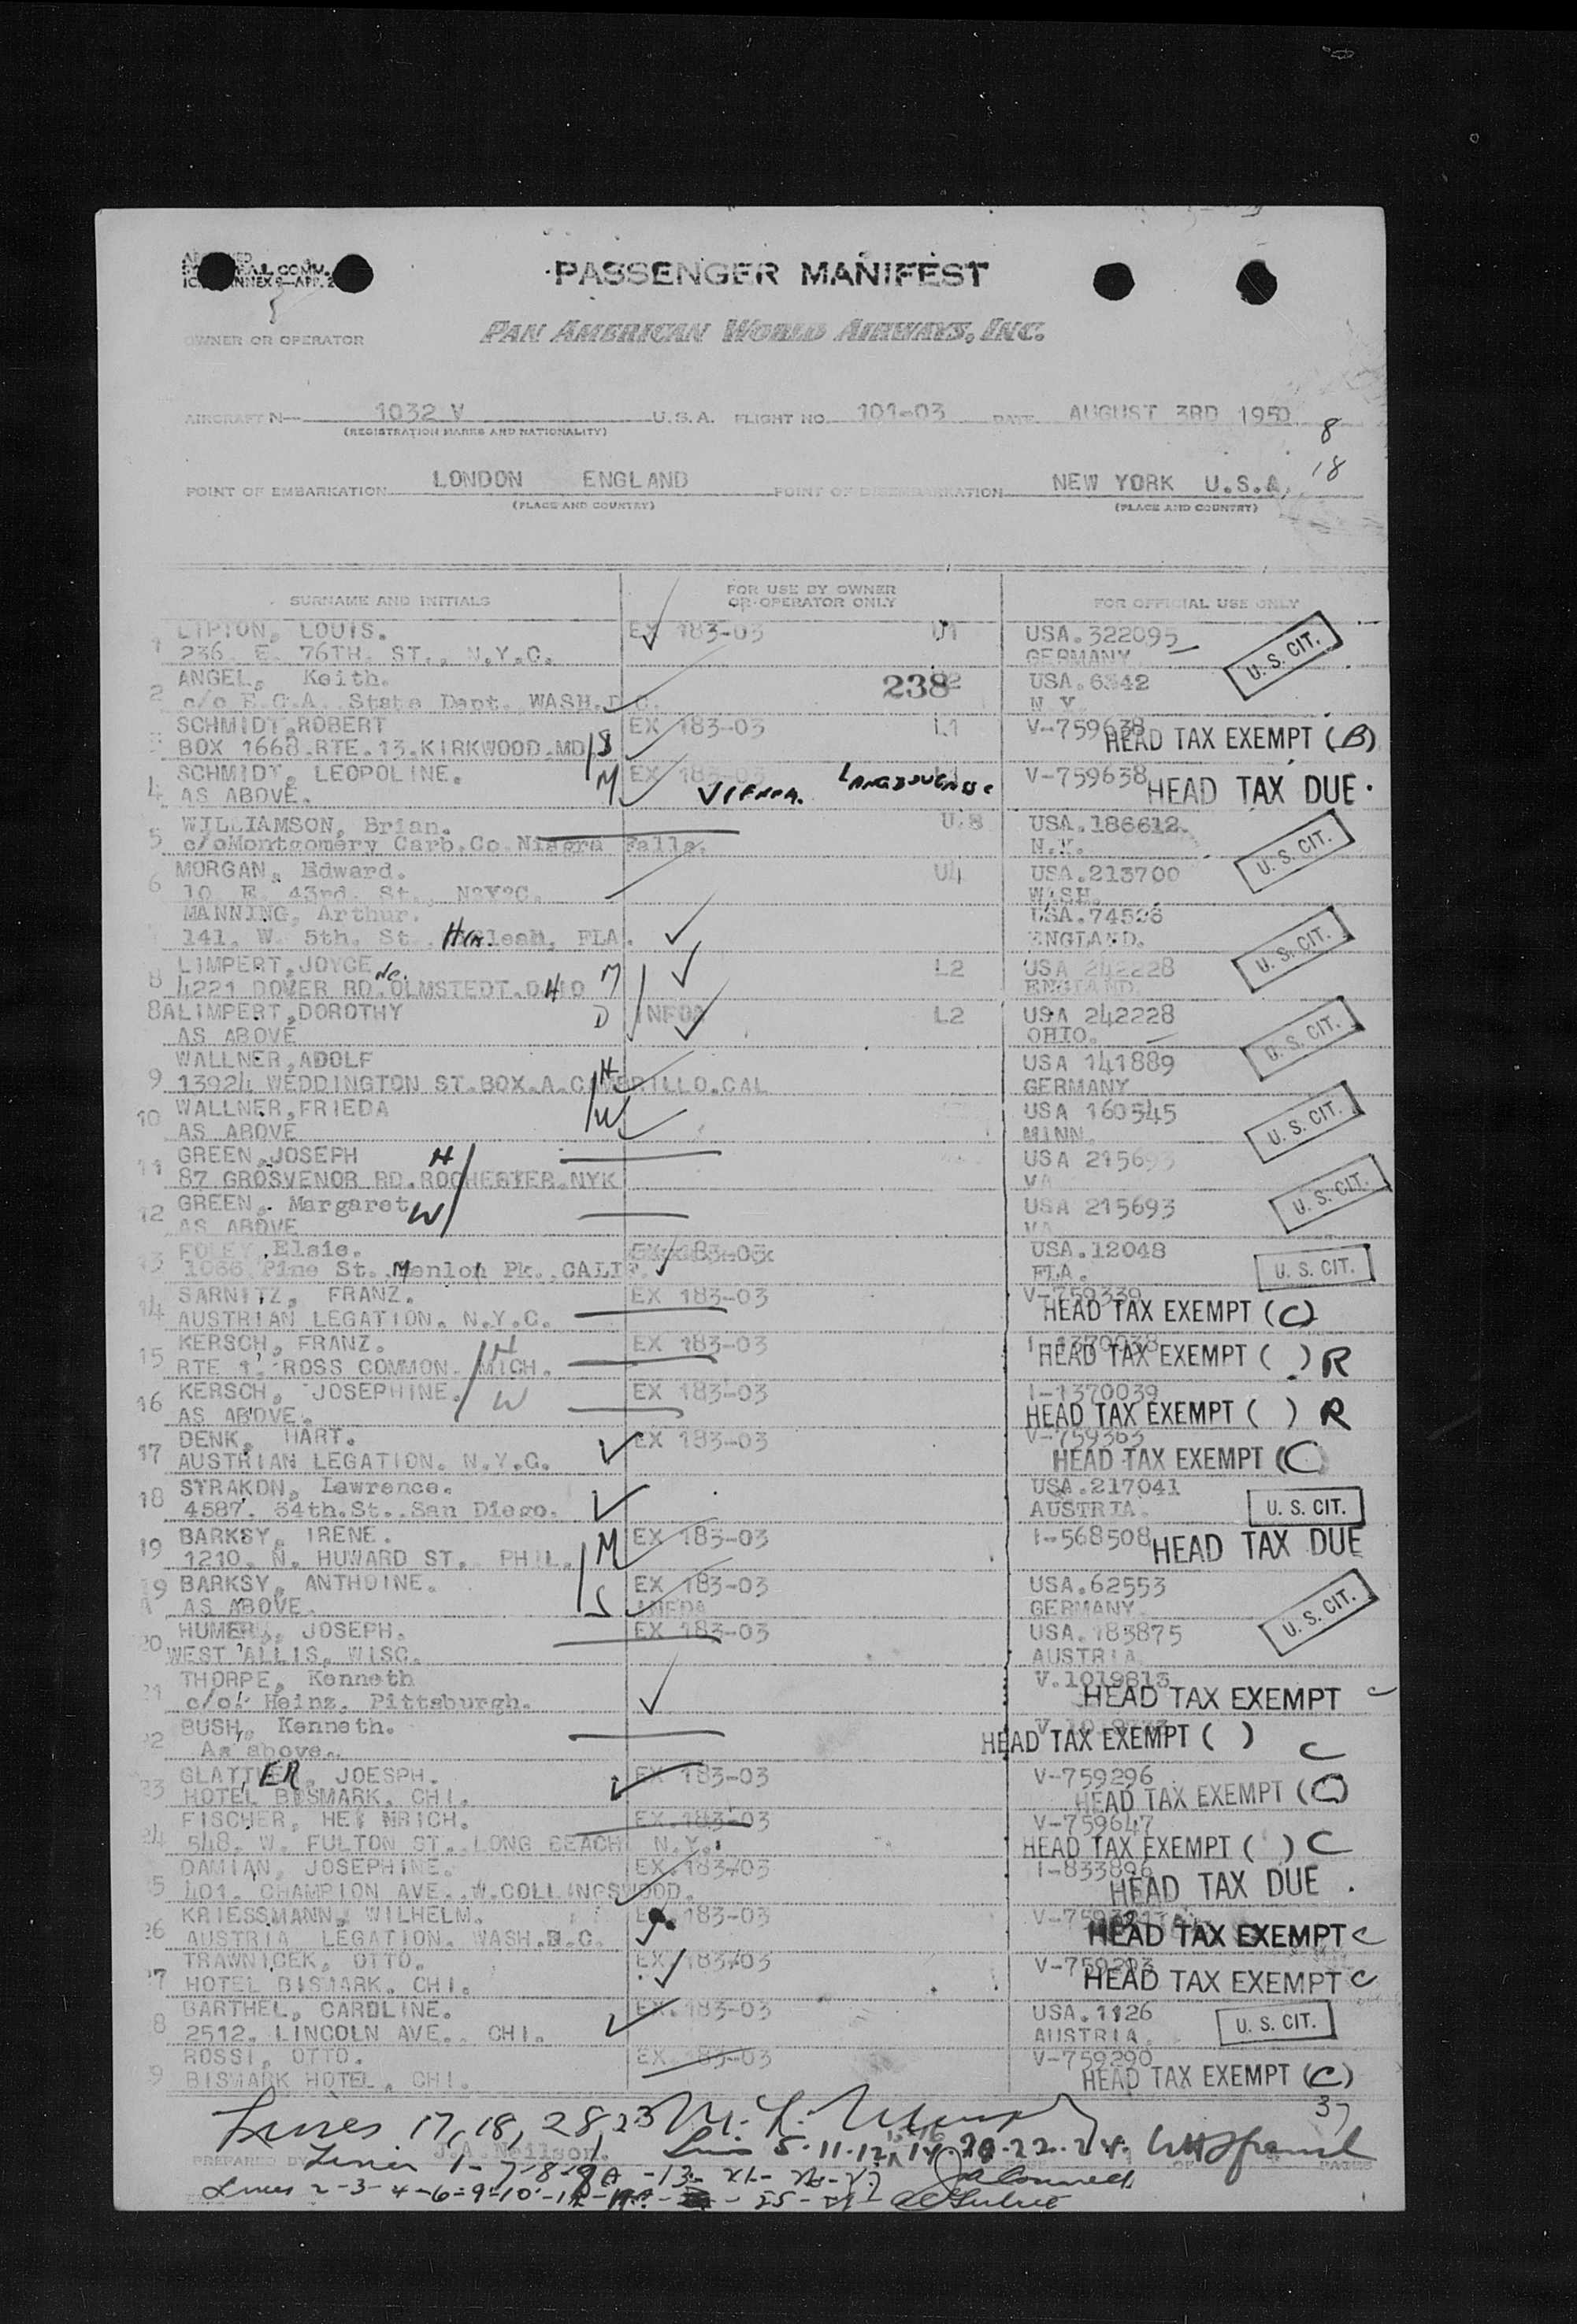 PASSENGER MANIFEST
OWNER OR OPERATOR
PAN AMERICAN WORLD AIRWAYS, INC.
AIRCRAFT N— 1032 V U.S.A. FLIGHT NO. 101-03 DATE AUGUST 3RD 1950
(REGISTRATION MARKS AND NATIONALITY)
8
18
POINT OF EMBARKATION LONDON ENGLAND POINT OF DISEMBARKATION NEW YORK U.S.A.
(PLACE AND COUNTRY) (PLACE AND COUNTRY)
SURNAME AND INITIALS FOR USE BY OWNER OR OPERATOR ONLY FOR OFFICIAL USE ONLY
1 LIPTON, LOUIS. EX 183-03 U1 USA.322095
236. E. 76TH. ST., N.Y.C. GERMANY U.S. CIT.
2 ANGEL, Keith. 238 USA.6342
c/o E.C.A. State Dept. WASH.D.C. N.Y.
SCHMIDT.ROBERT EX 183-03 L1 V-759638
BOX 1668.RTE.13.KIRKWOOD.MD S HEAD TAX EXEMPT (B)
4 SCHMIDT, LEOPOLINE. M EX 183-03 V-759638
AS ABOVE. VIENNA. HEAD TAX DUE.
5 WILLIAMSON, Brian. U.8 USA.186612.
c/oMontgomery Carb.Co.Niagra Falls. N.Y. U.S. CIT.
6 MORGAN, Edward. U4 USA.213700
10. E. 43rd. St., N?Y?C. WASH.
MANNING, Arthur. USA.74526
141. W. 5th. St. Hialeah, FLA. ENGLAND. U.S. CIT.
8 LIMPERT,JOYCE M L2 USA 242228
4221 DOVER RD.OLMSTEDT.OHIO ENGLAND
8A LIMPERT,DOROTHY D L2 USA 242228
AS ABOVE OHIO. U.S. CIT.
9 WALLNER,ADOLF H USA 141889
13924 WEDDINGTON ST.BOX.A.CAMARILLO.CAL GERMANY
10 WALLNER,FRIEDA W USA 160545
AS ABOVE MINN. U.S. CIT.
11 GREEN,JOSEPH H USA 215693
87 GROSVENOR RD.ROCHESTER.NYK VA
12 GREEN, Margaret W USA 215693 U.S. CIT.
AS ABOVE VA
13 FOLEY, Elsie. EX 183-03 USA.12048
1066 Pine St. Menlo Pk., CALIF. FLA. U.S. CIT.
14 SARNITZ, FRANZ. EX 183-03 V-759339
AUSTRIAN LEGATION. N.Y.C. HEAD TAX EXEMPT (C)
15 KERSCH, FRANZ. H EX 183-03 I-1370038
RTE 1, ROSS COMMON. MICH. HEAD TAX EXEMPT ( ) R
16 KERSCH, JOSEPHINE. W EX 183-03 I-1370039
AS ABOVE. HEAD TAX EXEMPT ( ) R
17 DENK, HART. EX 183-03 V-759363
AUSTRIAN LEGATION. N.Y.C. HEAD TAX EXEMPT (C)
18 STRAKON, Lawrence. USA.217041
4587. 34th.St..San Diego. AUSTRIA. U.S. CIT.
19 BARKSY, IRENE. M EX 183-03 I-568508
1210. N. HUWARD ST. PHIL. HEAD TAX DUE
19 A BARKSY, ANTHOINE. S EX 183-03 USA.62553
AS ABOVE. GERMANY. U.S. CIT.
20 HUMER, JOSEPH. EX 183-03 USA.183875
WEST ALLIS, WISC. AUSTRIA
21 THORPE, Kenneth V.1019813
c/o Heinz. Pittsburgh. HEAD TAX EXEMPT C
22 BUSH, Kenneth.
As above. HEAD TAX EXEMPT ( ) C
23 GLATTNER, JOESPH. EX 183-03 V-759296
HOTEL BISMARK. CHI. HEAD TAX EXEMPT (C)
24 FISCHER, HEINRICH. EX.183-03 V-759647
548. W. FULTON ST. LONG BEACH N.Y. HEAD TAX EXEMPT ( ) C
5 DAMIAN, JOSEPHINE. EX.183-03 I-833896
401. CHAMPION AVE..W.COLLINGSWOOD. HEAD TAX DUE.
26 KRIESSMANN, WILHELM. EX.183-03
AUSTRIA LEGATION. WASH.D.C. HEAD TAX EXEMPT C
7 TRAWNICEK, OTTO. EX.183-03 V-759293
HOTEL BISMARK. CHI. HEAD TAX EXEMPT C
8 BARTHEL, CAROLINE. EX.183-03 USA.1126
2512. LINCOLN AVE.. CHI. AUSTRIA. U.S. CIT.
9 ROSSI, OTTO. EX 183-03 V-759290
BISMARK HOTEL, CHI. HEAD TAX EXEMPT (C)
37
Lines 17, 18, 28, 23
PREPARED BY J.A. Neilson. OF PAGES